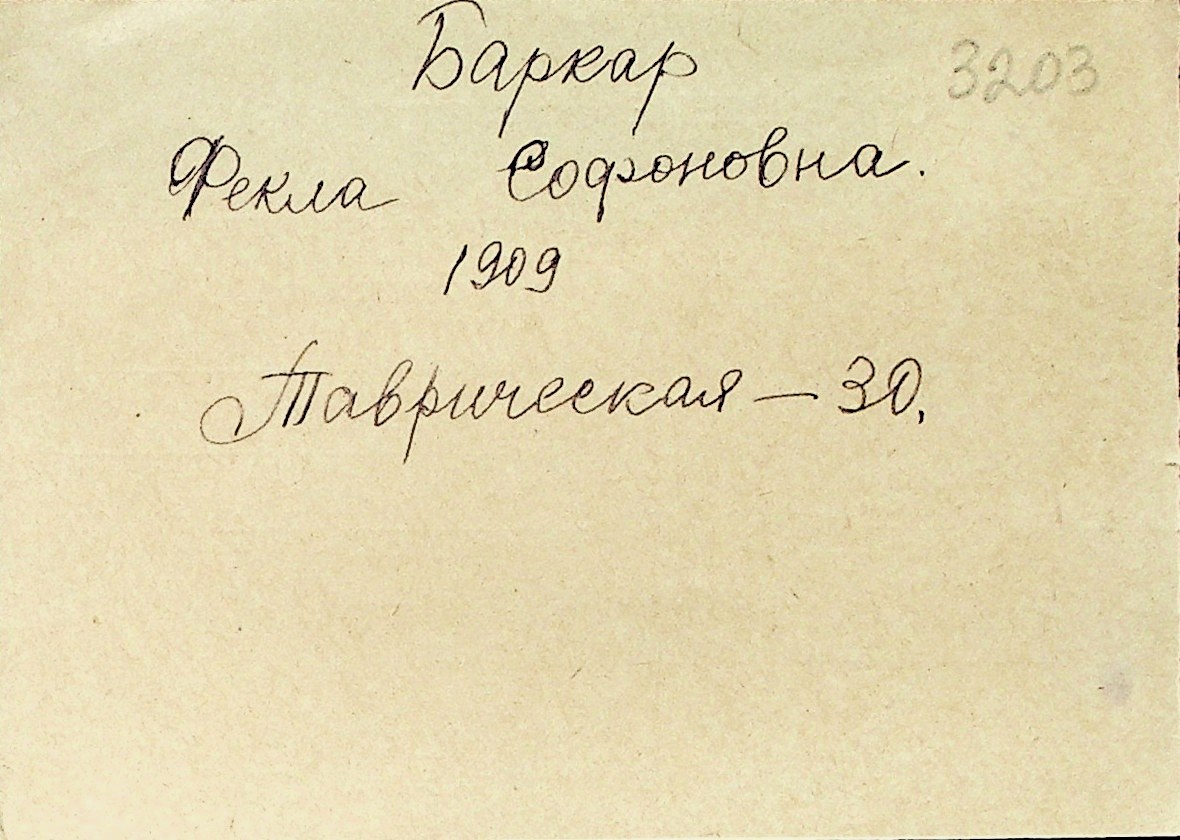 Баркар 3203
Фекла Софоновна.
1909
Таврическая — 30.